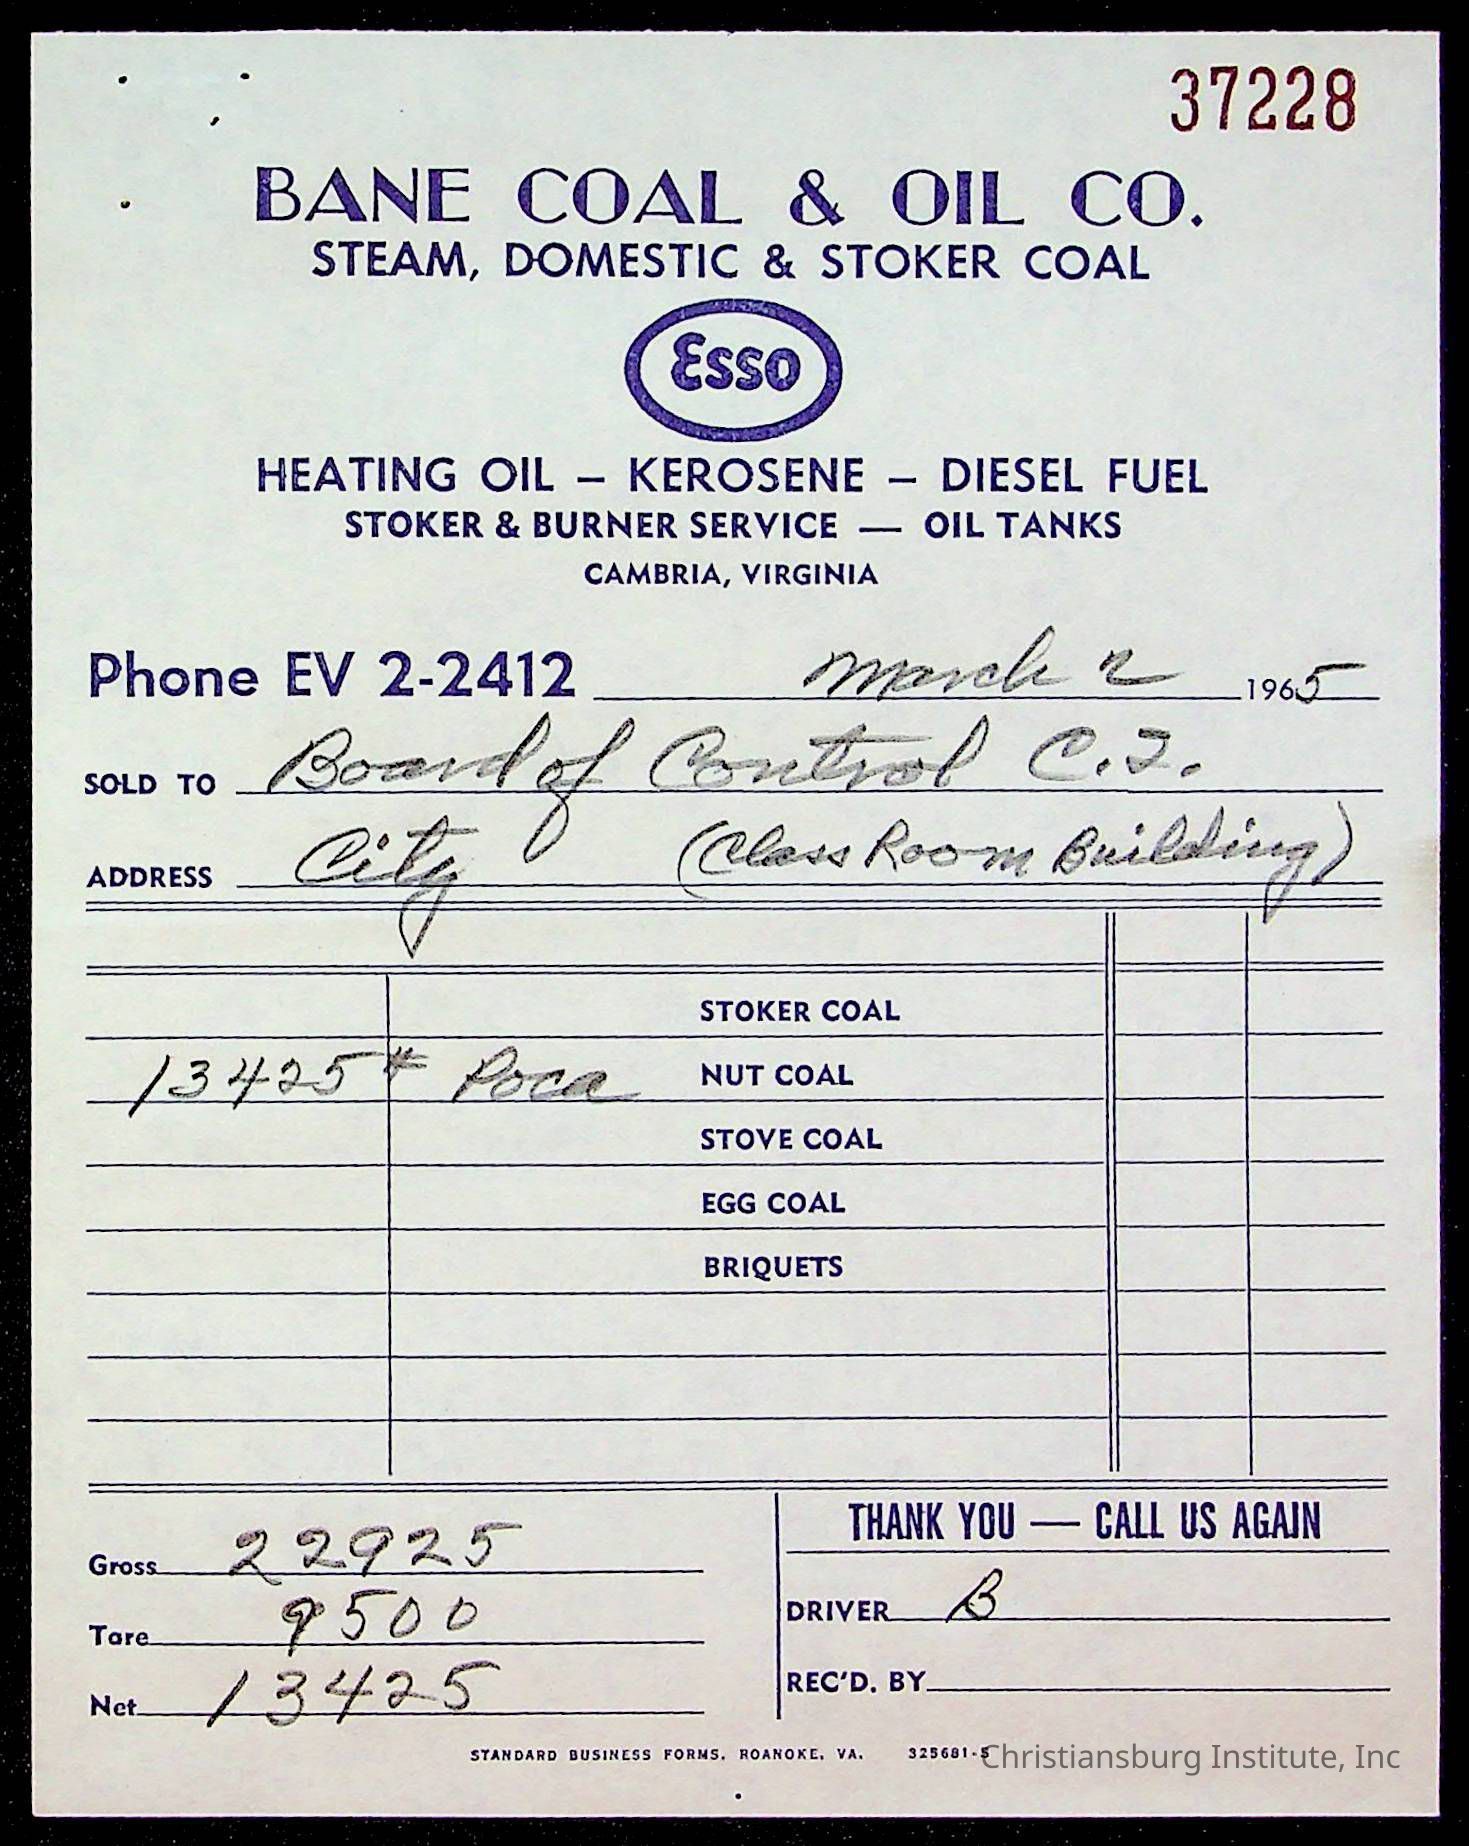 37228
BANE COAL & OIL CO.
STEAM, DOMESTIC & STOKER COAL
Esso
HEATING OIL – KEROSENE – DIESEL FUEL
STOKER & BURNER SERVICE — OIL TANKS
CAMBRIA, VIRGINIA
Phone EV 2-2412 March 2 1965
SOLD TO Board of Control C.I.
ADDRESS City (Class Room Building)
STOKER COAL
13425# Poca NUT COAL
STOVE COAL
EGG COAL
BRIQUETS
Gross 22925
Tare 9500
Net 13425
THANK YOU — CALL US AGAIN
DRIVER B
REC'D. BY
STANDARD BUSINESS FORMS, ROANOKE, VA. 325681-5
Christiansburg Institute, Inc